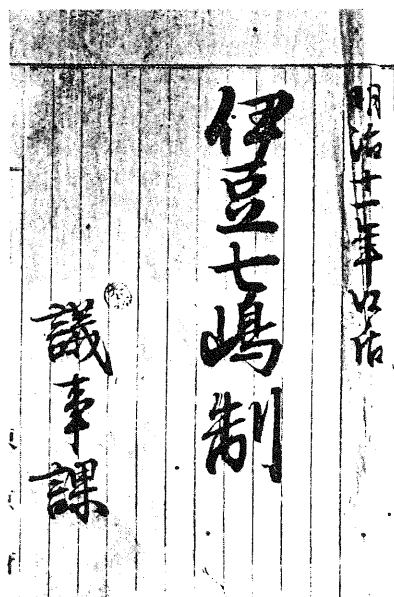 明治十一年以后
伊豆七嶋制
議事課